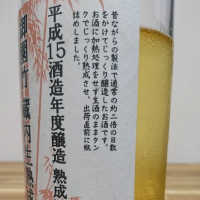 昔ながらの製法で通常の約二倍の日数
をかけてじっくり醸造したお酒です。
お酒に加熱処理をせず生酒のままタン
クでじっくり熟成させ、出荷直前に瓶
詰めしました。
平成15酒造年度醸造 熟成
御園竹 蔵内生熟